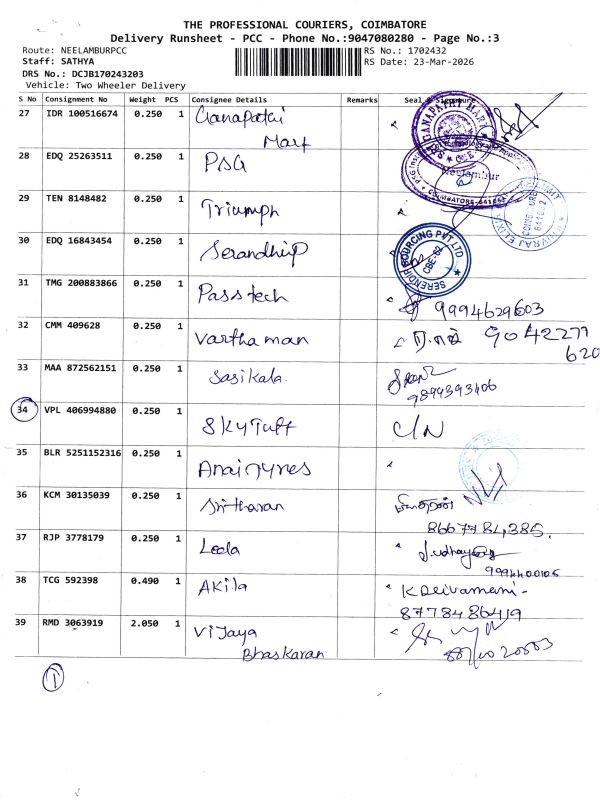 THE PROFESSIONAL COURIERS, COIMBATORE
Delivery Runsheet - PCC - Phone No.:9047080280 - Page No.:3
Route: NEELAMBURPCC
RS No.: 1702432
Staff: SATHYA
RS Date: 23-Mar-2026
DRS No.: DCJB170243203
Vehicle: Two Wheeler Delivery
S No Consignment No Weight PCS Consignee Details Remarks Seal & Signature
27 IDR 100516674 0.250 1 Ganapathi
Mart
28 EDQ 25263511 0.250 1 PSG
Neelambur
COIMBATORE-641062
29 TEN 8148482 0.250 1 Triumph
30 EDQ 16843454 0.250 1 Serandhip
SERENDIP SOURCING PVT LTD
CBE-62
31 TMG 200883866 0.250 1 Passtech 9994629603
32 CMM 409628 0.250 1 Varthaman 9042277
620
33 MAA 872562151 0.250 1 Sasikala.
9899393406
34 VPL 406994880 0.250 1 SkyTuff C/N
35 BLR 5251152316 0.250 1 Anaityres
36 KCM 30135039 0.250 1 Sritharan
8667784385.
37 RJP 3778179 0.250 1 Leela
38 TCG 592398 0.490 1 Akila K Deivamani-
8778486419
39 RMD 3063919 2.050 1 Vijaya
Bhaskaran
1